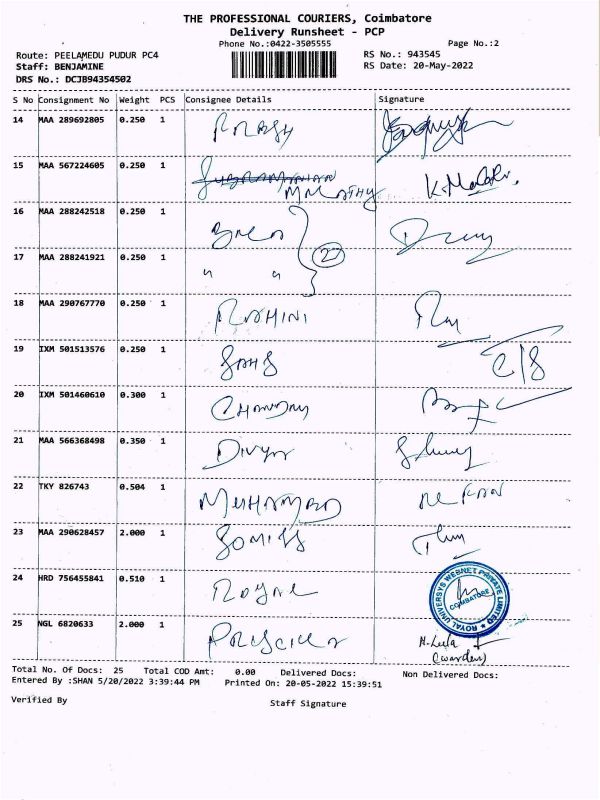 THE PROFESSIONAL COURIERS, Coimbatore
Delivery Runsheet - PCP
Phone No.:0422-3505555
Page No.:2
Route: PEELAMEDU PUDUR PC4
RS No.: 943545
Staff: BENJAMINE
RS Date: 20-May-2022
DRS No.: DCJB94354502
S No Consignment No Weight PCS Consignee Details Signature
14 MAA 289692805 0.250 1
15 MAA 567224605 0.250 1
16 MAA 288242518 0.250 1
17 MAA 288241921 0.250 1 " "
18 MAA 290767770 0.250 1 ROHINI
19 IXM 501513576 0.250 1 C/S
20 IXM 501460610 0.300 1
21 MAA 566368498 0.350 1 Divya
22 TKY 826743 0.504 1 MUHAMMAD
23 MAA 290628457 2.000 1
24 HRD 756455841 0.510 1
ROYAL UNIVERSYS WEBNET PRIVATE LIMITED
COIMBATORE
25 NGL 6820633 2.000 1 Priscilla N. Leela
(warden)
Total No. Of Docs: 25 Total COD Amt: 0.00 Delivered Docs: Non Delivered Docs:
Entered By :SHAN 5/20/2022 3:39:44 PM Printed On: 20-05-2022 15:39:51
Verified By
Staff Signature